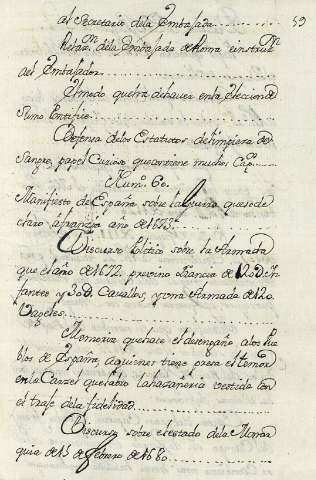 59
al Secretario dela Embajada
Relaz.n dela Embajada de Roma einstruc.n
del Embajador
El modo que ha de haver en la Eleccion de
Sumo Pontifice
Defensa delos Estatutos de limpieza de
Sangre, papel Curioso que contiene muchos Cap.s
Num.o 60.
Manifiesto de España sobre la Guerra que se de
claro a francia año de 1673
Discurso Politico sobre la Armada
que el año de 1672. previno Francia de 120 Ɖ in
fantes y 30Ɖ. Cavallos, y una Armada de 120
Vageles
Memoria que hace el desengaño a los Pue
blos de España, a quienes tiene presa el temor
en la Carzel que labro la hazañeria vestida con
el traje dela fidelidad
Discurso sobre el estado dela Monar
quia de 15 de febrero de 1680